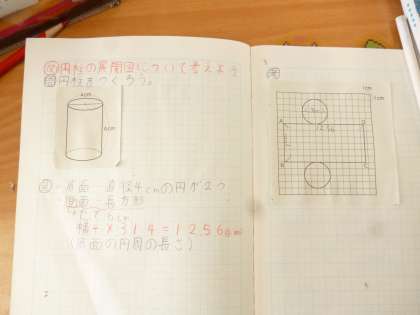 め 円柱の展開図について考えよう
問 円柱をつくろう。
4cm
6cm
底面 直径4cmの円が2つ
側面 長方形
たて6cm
横4×3.14=12.56cm
(底面の円周の長さ)
1cm
1cm
A
D
12.56
B
C